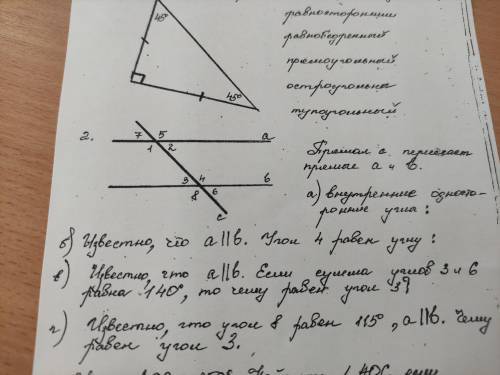 45°
45°
равносторонний
равнобедренный
прямоугольный
остроугольный
тупоугольный
2.
7 5 a
1 2
3 4 b
8 6
c
Прямая c пересекает
прямые a и b.
а) внутренние односто-
ронние углы:
б) Известно, что a||b. Угол 4 равен углу:
в) Известно, что a||b. Если сумма углов 3 и 6
равна 140°, то чему равен угол 3?
г) Известно, что угол 8 равен 115°, a||b. Чему
равен угол 3.